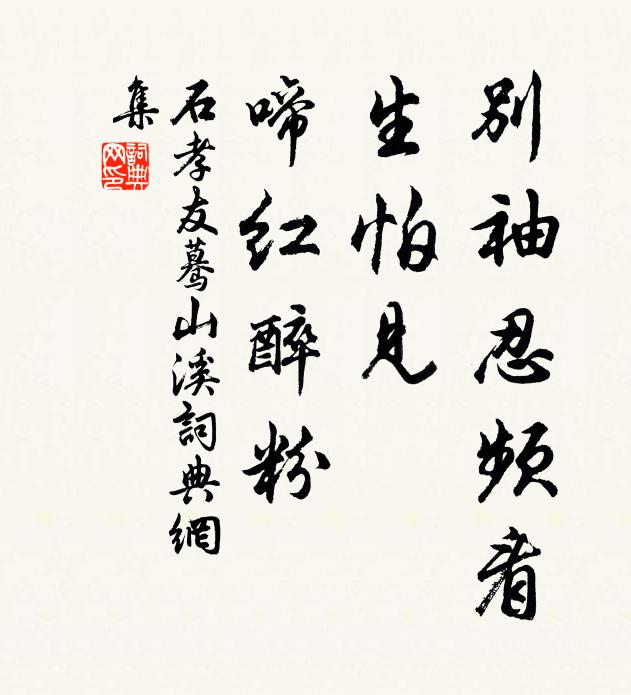 別袖忍頻看
生怕見
啼紅醉粉
石孝友驀山溪詞典網
集
詞典网印